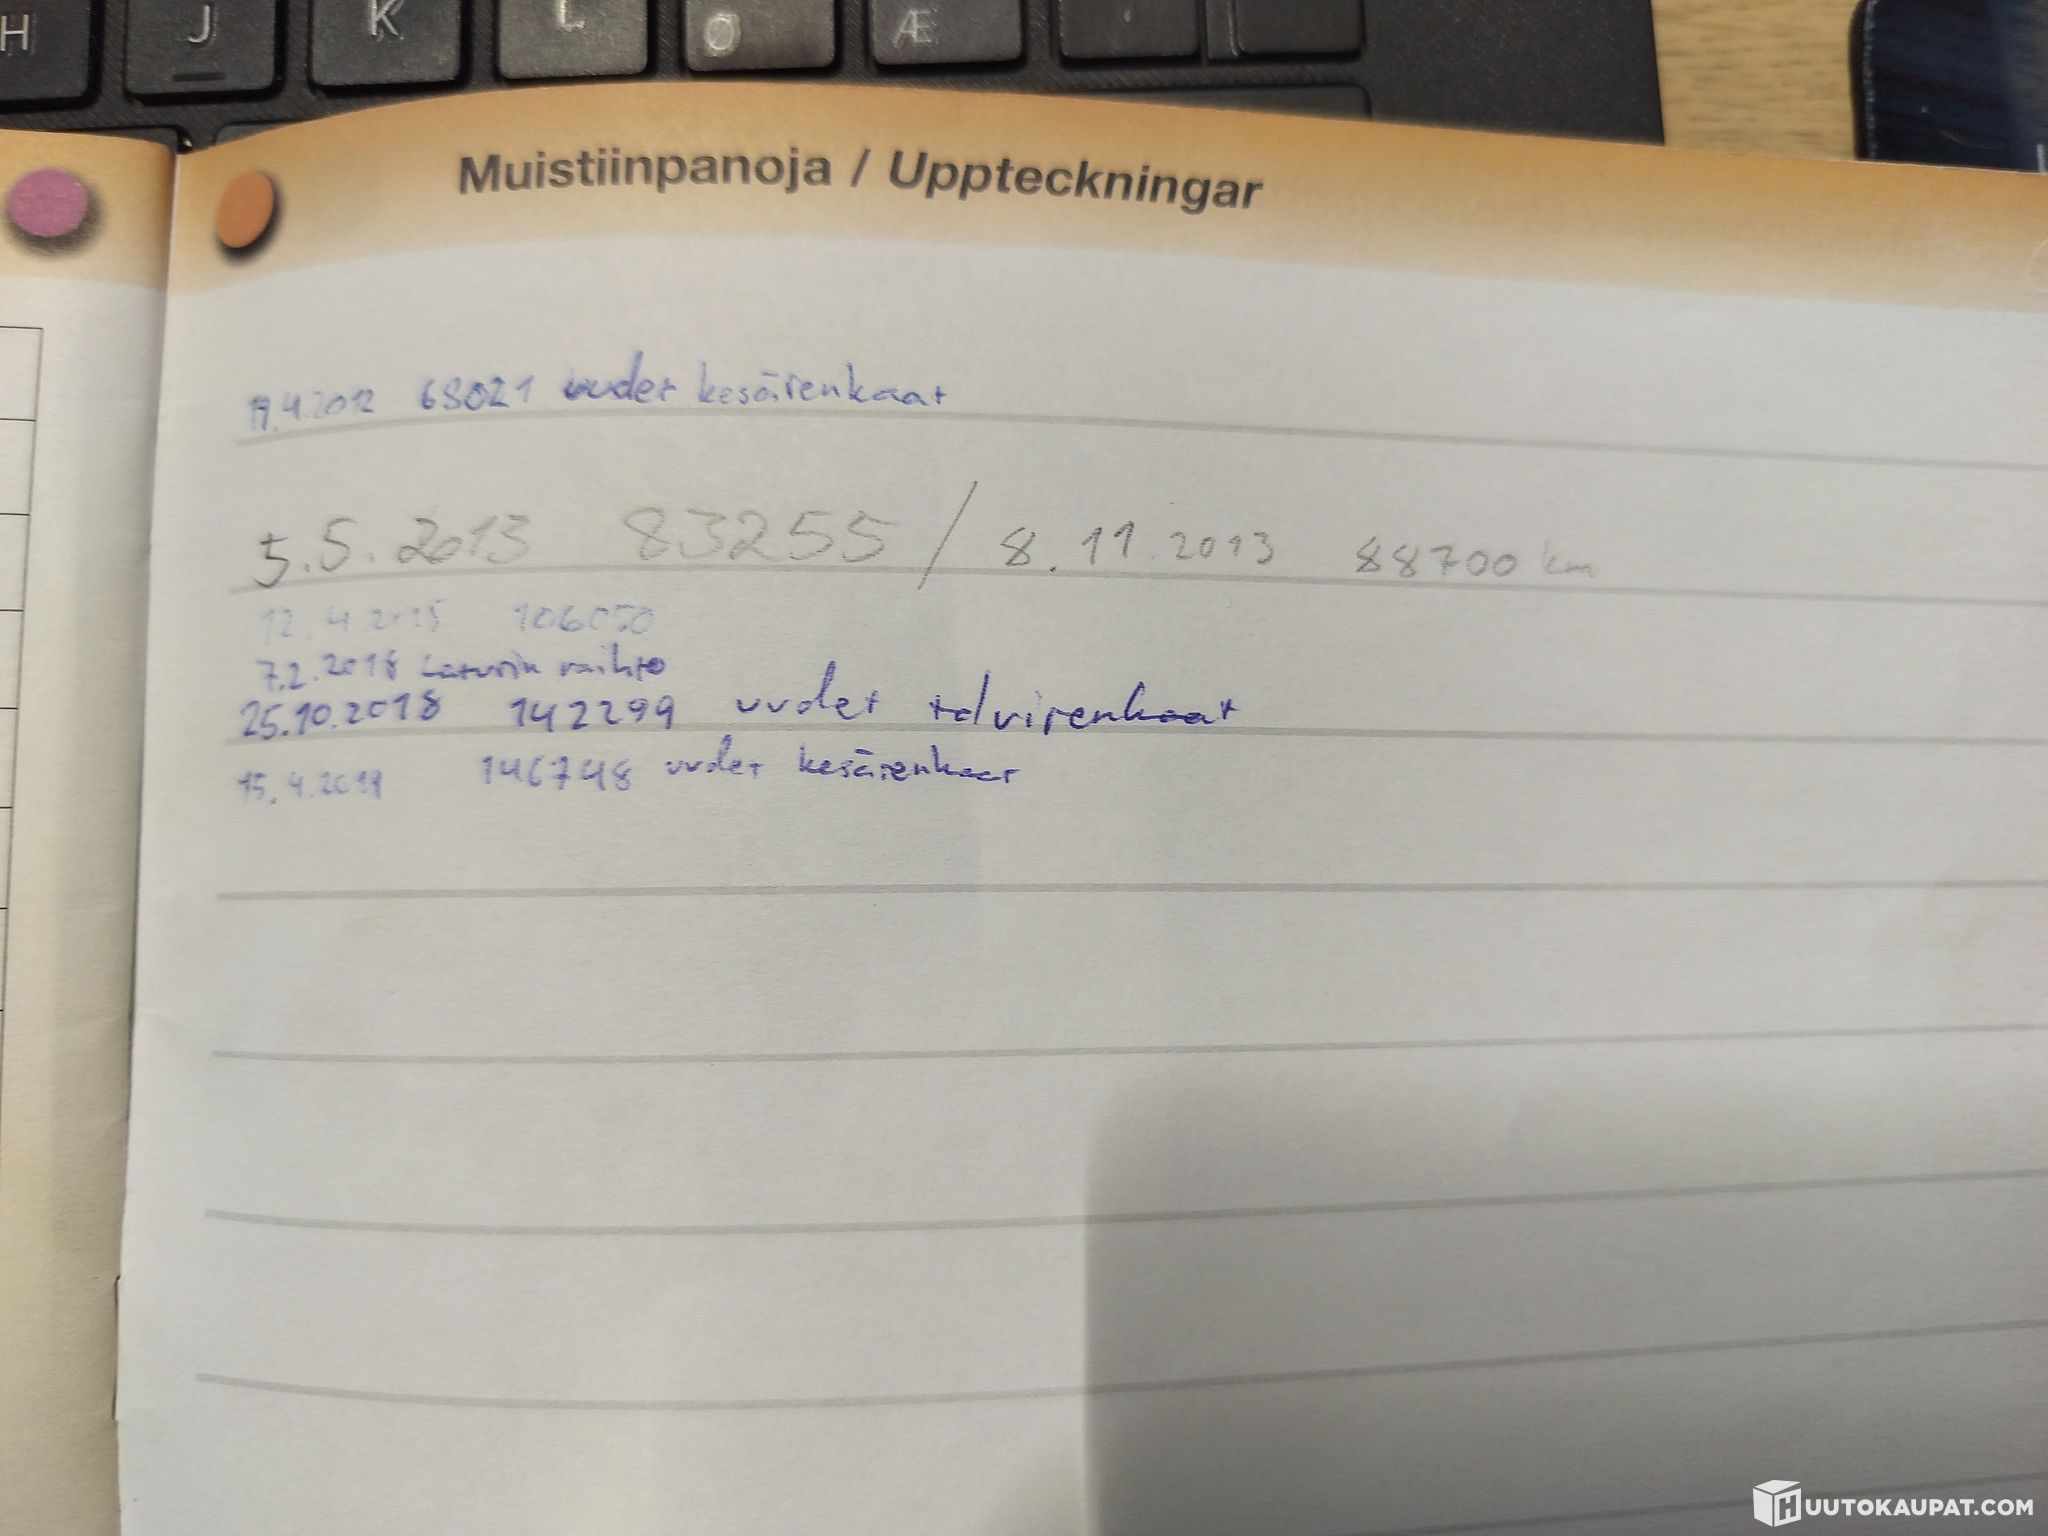 H J K L Ø Æ '
Muistiinpanoja / Uppteckningar
4.2012 68021 uudet kesärenkaat
5.5.2013 83255 / 8.11.2013 88700 km
12.4.2015 106050
7.2.2018 Laturin vaihto
25.10.2018 142299 uudet talvirenkaat
15.4.2019 146748 uudet kesärenkaat
HUUTOKAUPAT.COM